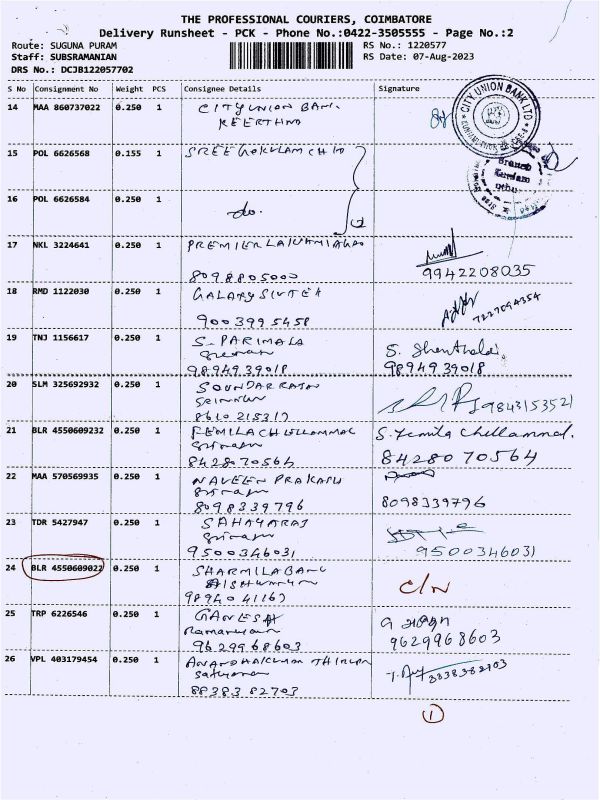 THE PROFESSIONAL COURIERS, COIMBATORE
Delivery Runsheet - PCK - Phone No.:0422-3505555 - Page No.:2
Route: SUGUNA PURAM RS No.: 1220577
Staff: SUBSRAMANIAN RS Date: 07-Aug-2023
DRS No.: DCJB122057702
S No Consignment No Weight PCS Consignee Details Signature
14 MAA 860737022 0.250 1 CITY UNION BANK
KEERTHNA
CITY UNION BANK LTD
15 POL 6626568 0.155 1 SREE GOKULAM CH
Branch
16 POL 6626584 0.250 1 do.
17 NKL 3224641 0.250 1 PREMIER
8098805000 9942208035
18 RMD 1122030 0.250 1 GALAXY
9003995458 7227694354
19 TNJ 1156617 0.250 1 S. PARIMALA S.
9894939018 9894939018
20 SLM 325692932 0.250 1 SOUNDAR RAJAN
8610215317 9843153521
21 BLR 4550609232 0.250 1 FEMILA CHELLAMMAL S. Femila Chellammal.
8428070564 8428070564
22 MAA 570569935 0.250 1 NAVEEN PRAKASH
8098339796 8098339796
23 TDR 5427947 0.250 1 SAHAYARAJ
9500346031 9500346031
24 BLR 4550609022 0.250 1 SHARMILA BANU C/N
9894041167
25 TRP 6226546 0.250 1 GANESH
9629968603 9629968603
26 VPL 403179454 0.250 1
8838382703 8838382703
1